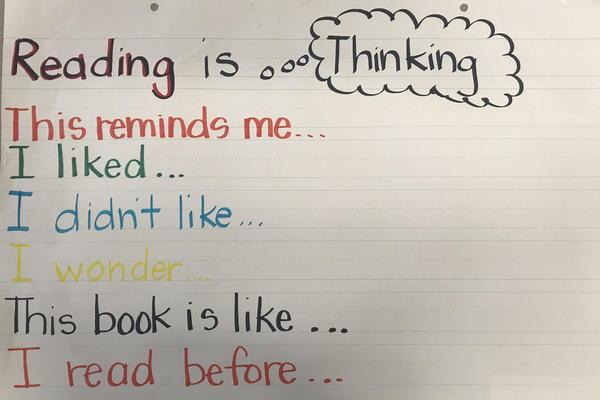 Reading is Thinking
This reminds me...
I liked...
I didn't like...
I wonder...
This book is like ...
I read before...